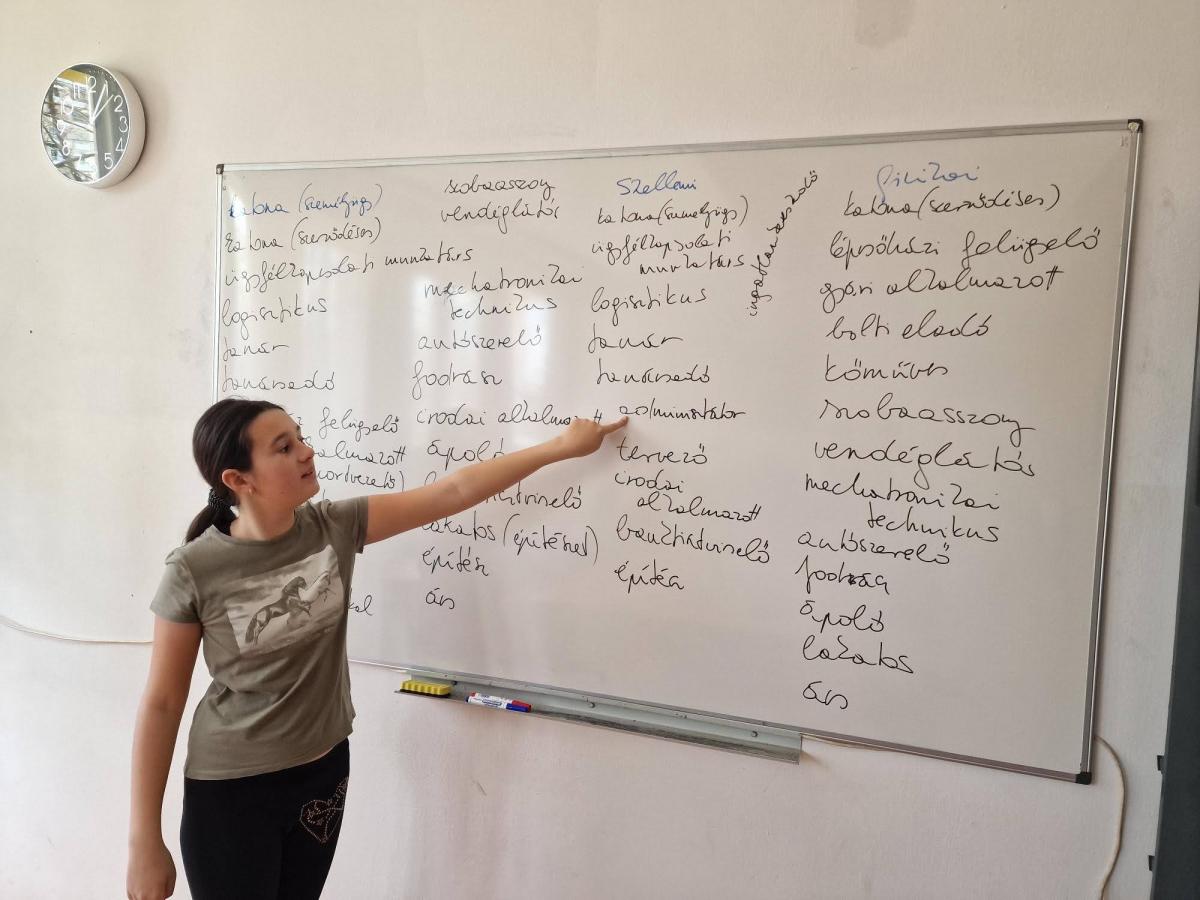 12
2
3
4
5
7
8
9
10
katona (személyügy)
katona (szerződéses)
ügyfélkapcsolati munkatárs
logisztikus
tanár
tanácsadó
felügyelő
szobaasszony
vendéglátós
mechatronikai
technikus
autószerelő
fodrász
irodai alkalmazott
ápoló
lakatos (építészet)
építész
ács
Szellemi
katona (személyügy)
ügyfélkapcsolati
munkatárs
logisztikus
tanár
tanácsadó
adminisztrátor
tervező
irodai
alkalmazott
építés
fizikai
katona (szerződéses)
lépcsőházi felügyelő
gyári alkalmazott
bolti eladó
kőműves
szobaasszony
vendéglátós
mechatronikai
technikus
autószerelő
fodrász
ápoló
lakatos
ács